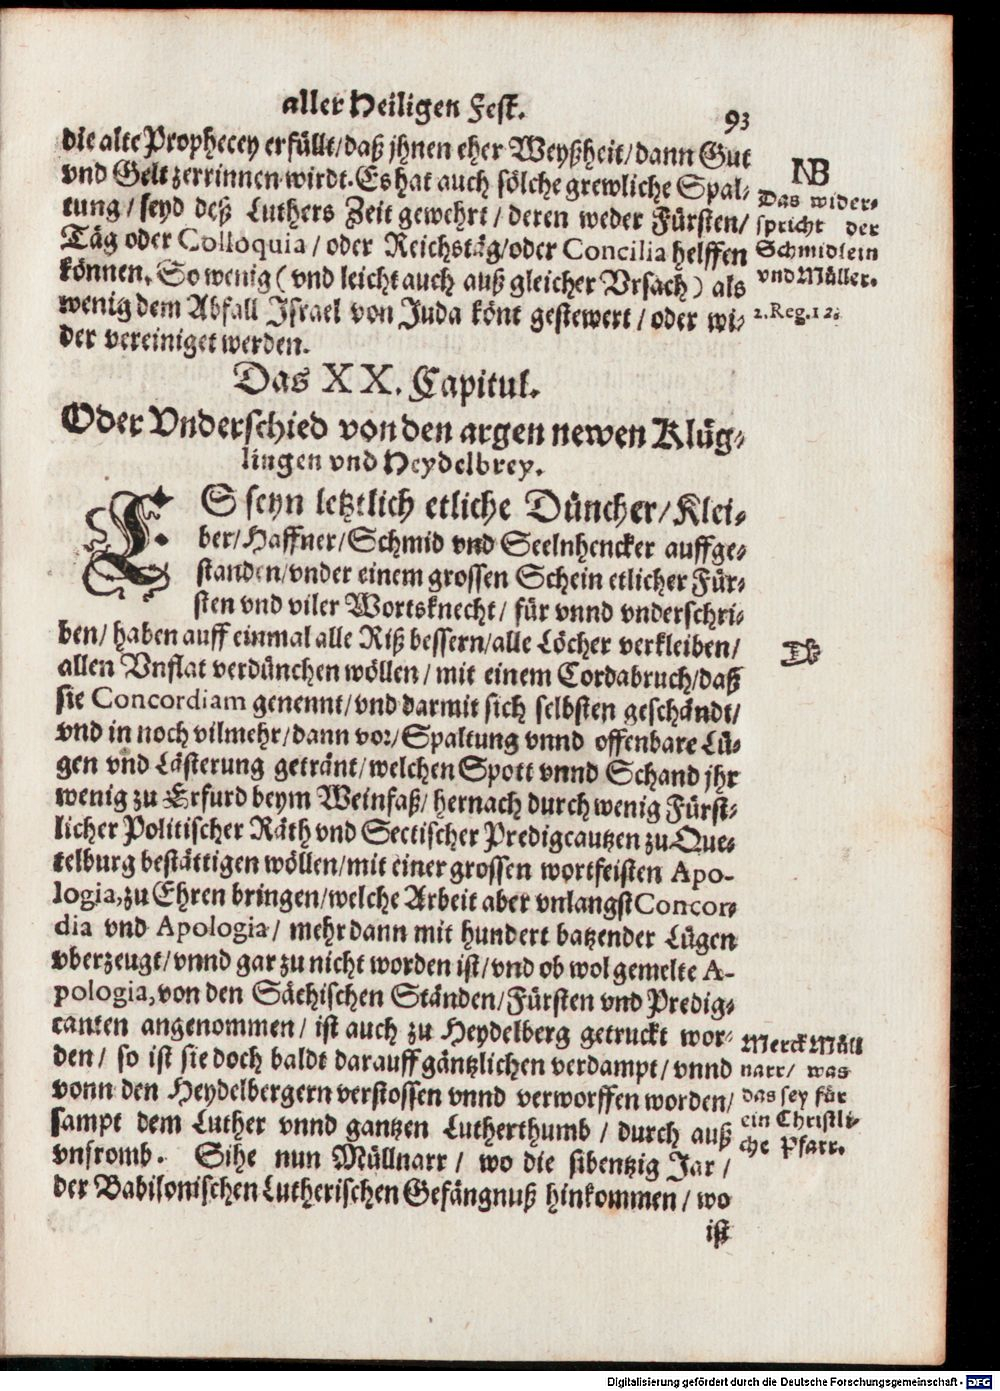 aller Heiligen Fest.
93
die alte Prophecey erfüllt/daß jhnen eher Weyßheit/dann Gut
vnd Gelt zerrinnen wirdt. Es hat auch sölche grewliche Spal-
tung/seyd deß Luthers Zeit gewehrt/deren weder Fürsten/
Täg oder Colloquia/oder Reichstäg/oder Concilia helffen
können. So wenig (vnd leicht auch auß gleicher Vrsach) als
wenig dem Abfall Israel von Juda könt gestewert/oder wi-
der vereiniget werden.
NB
Das wider-
spricht der
Schmidlein
vnd Müller.
2. Reg. 12.
Das XX. Capitul.
Oder Vnderschied von den argen newen Klüg-
lingen vnd Heydelbrey.
ES seyn letztlich etliche Düncher/Klei-
ber/Haffner/Schmid vnd Seelnhencker auffge-
standen/vnder einem grossen Schein etlicher Für-
sten vnd viler Wortsknecht/für vnnd vnderschri-
ben/haben auff einmal alle Riß bessern/alle Löcher verkleiben/
allen Vnflat verdünchen wöllen/mit einem Cordabruch/daß
sie Concordiam genennt/vnd darmit sich selbsten geschändt/
vnd in noch vilmehr/dann vor/Spaltung vnnd offenbare Lü-
gen vnd Lästerung getränt/welchen Spott vnnd Schand jhr
wenig zu Erfurd beym Weinfaß/hernach durch wenig Fürst-
licher Politischer Räth vnd Sectischer Predigcautzen zu Que-
telburg bestättigen wöllen/mit einer grossen wortfeisten Apo-
logia, zu Ehren bringen/welche Arbeit aber vnlangst Concor-
dia vnd Apologia/mehr dann mit hundert batzender Lügen
vberzeugt/vnnd gar zu nicht worden ist/vnd ob wol gemelte A-
pologia, von den Sächischen Ständen/Fürsten vnd Predig-
canten angenommen/ist auch zu Heydelberg getruckt wor-
den/so ist sie doch baldt darauff gäntzlichen verdampt/vnnd
vonn den Heydelbergern verstossen vnnd verworffen worden/
sampt dem Luther vnnd gantzen Lutherthumb/durch auß
vnfromb. Sihe nun Müllnarr/wo die sibentzig Jar/
der Babilonischen Lutherischen Gefängnuß hinkommen/wo
Merck Müll
narr/was
das sey für
ein Christli-
che Pfarr.
ist
Digitalisierung gefördert durch die Deutsche Forschungsgemeinschaft - DFG